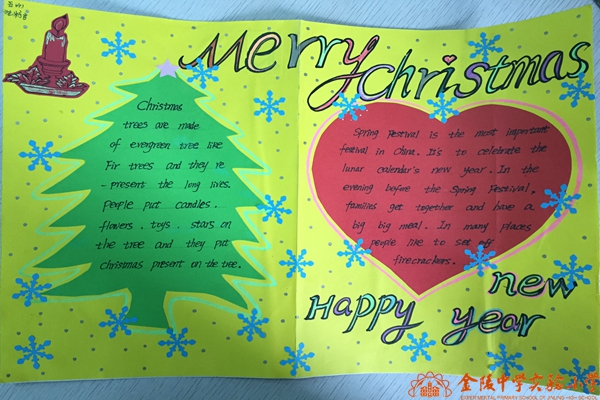 Merry
Christmas
Christmas
trees are made
of evergreen tree like
Fir trees and they re
-present the long lives.
People put candles.
flowers. toys. stars on
the tree and they put
christmas present on the tree.
Spring Festival is the most important
festival in China. It's to celebrate the
lunar calendar's new year. In the
evening before the Spring Festival.
families get together and have a
big big meal. In many places
people like to set off
firecrackers.
Happy new
year
金陵中学实验小学
EXPERIMENTAL PRIMARY SCHOOL OF JINLING HIGH SCHOOL